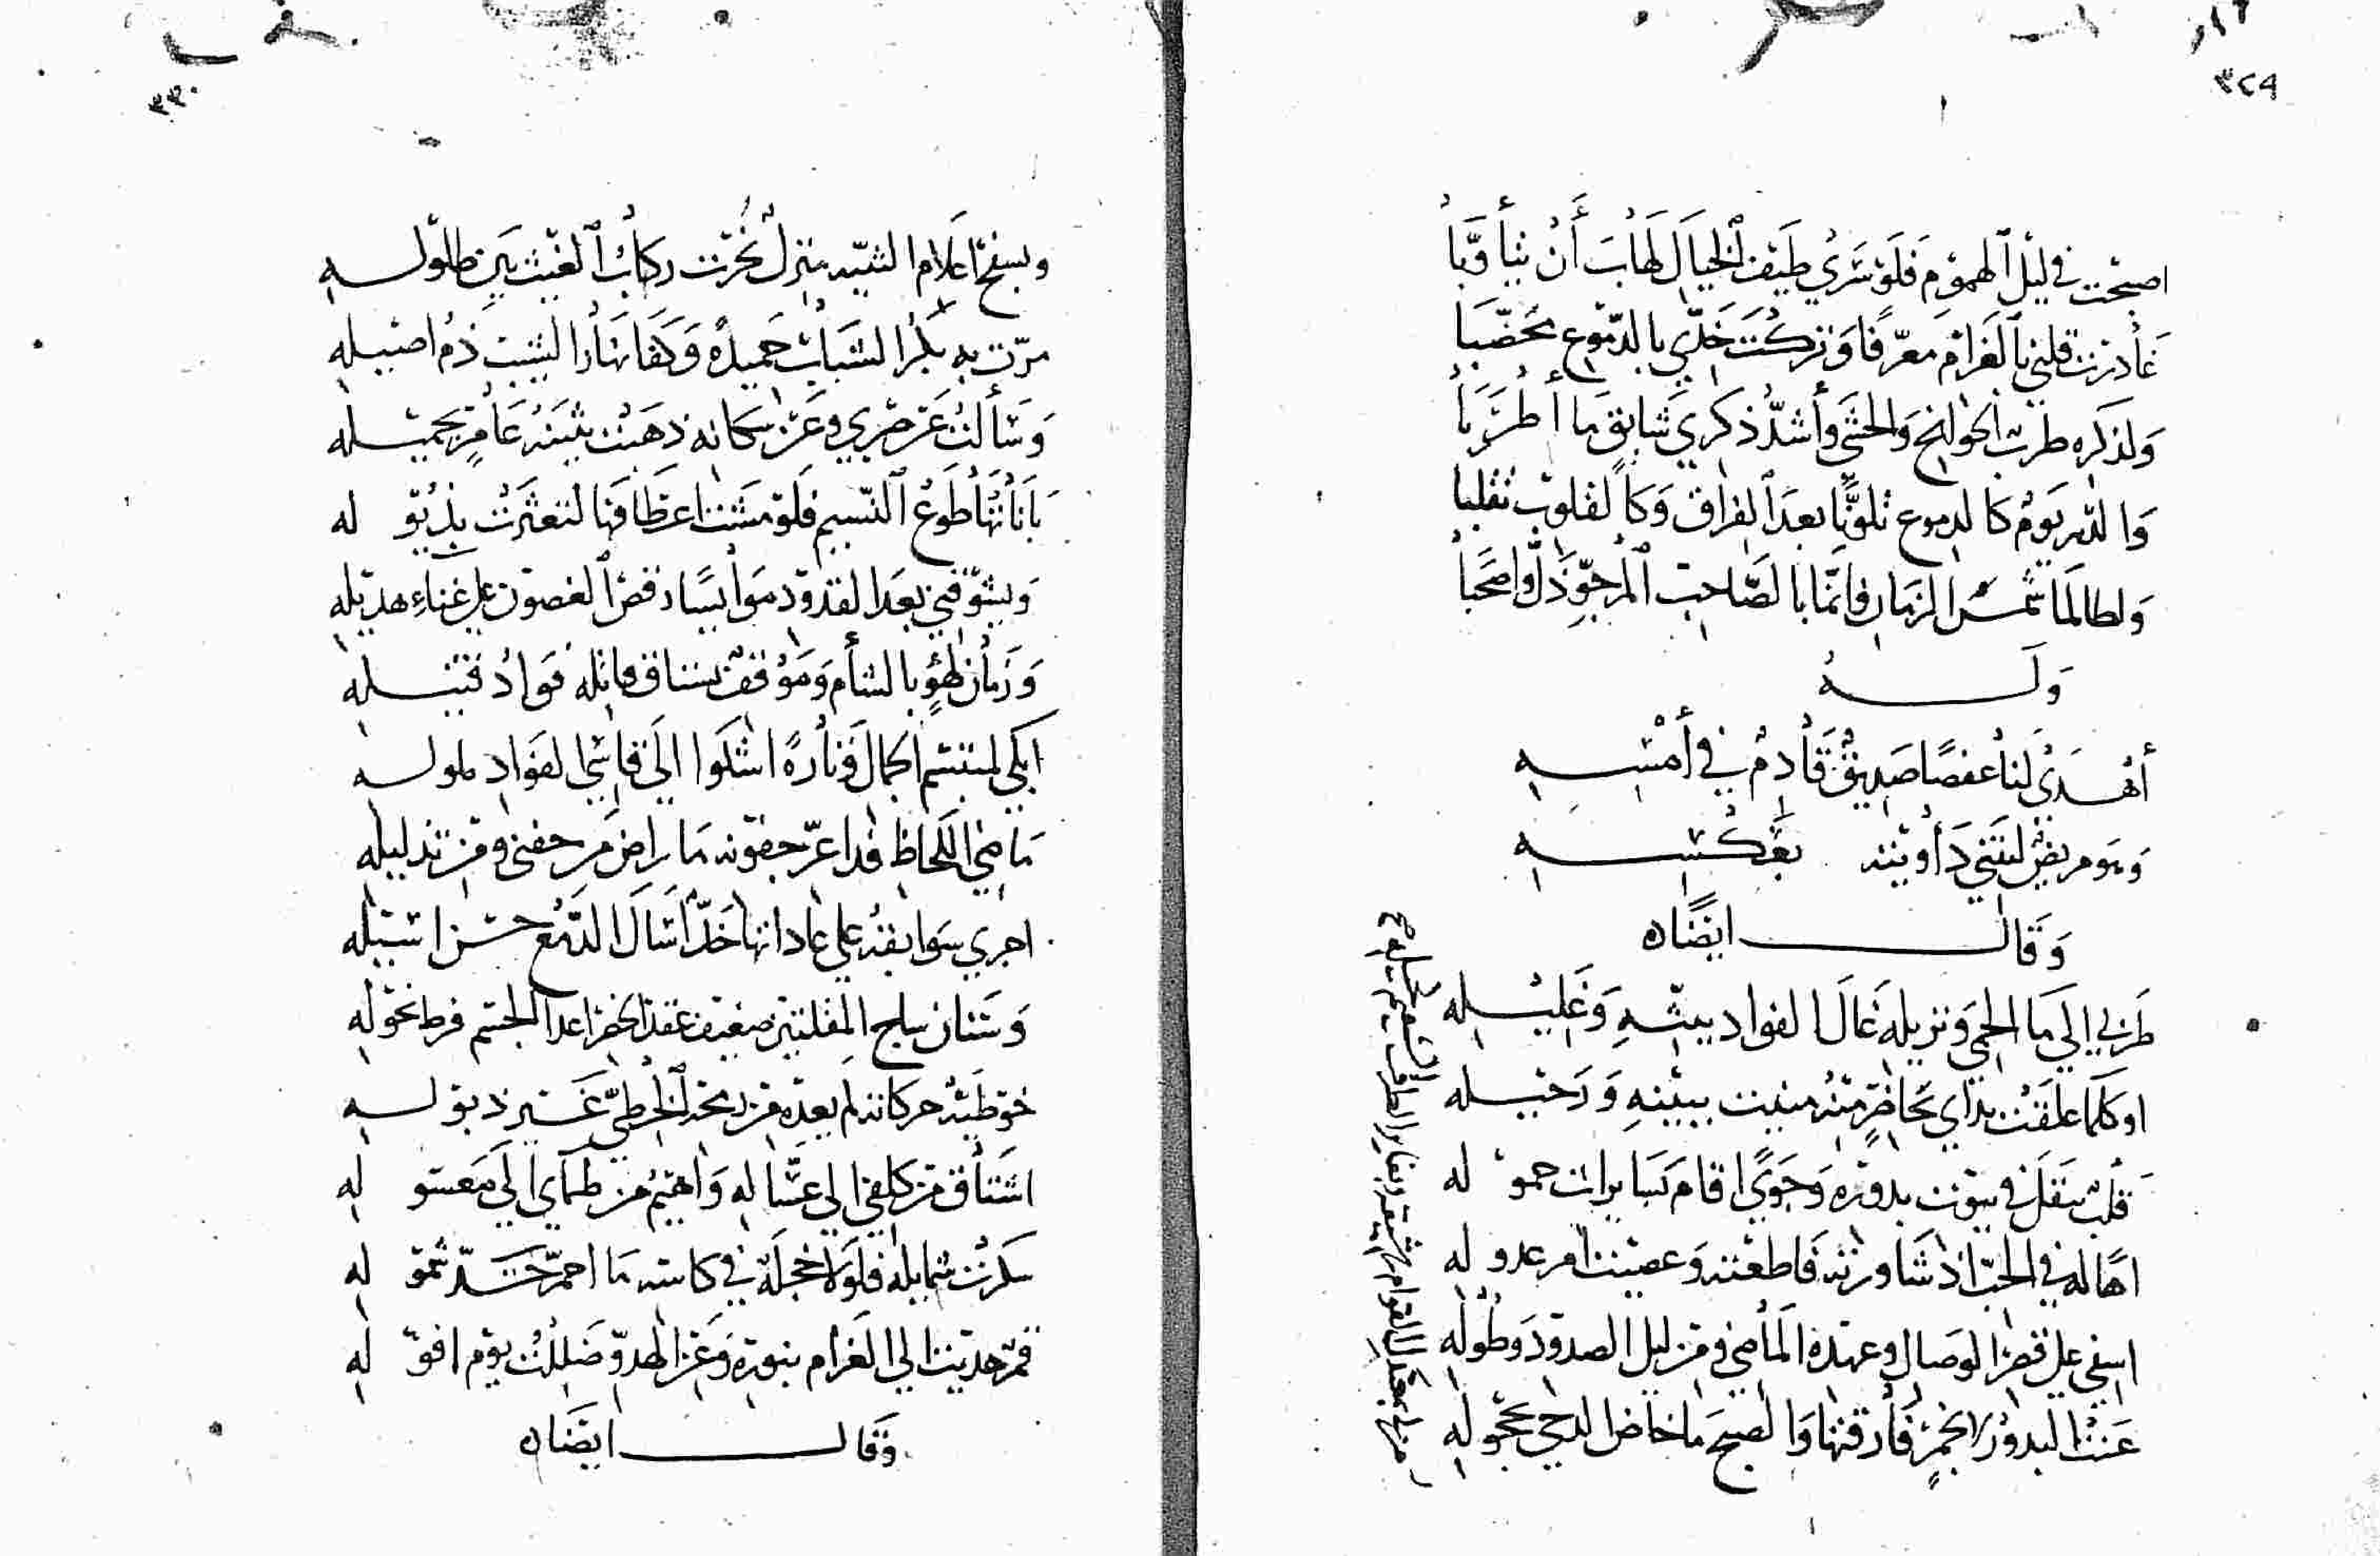 ٣٢٩
اصبحت في ليل الهموم فلو سرى طيف الخيال لهاب أن يتأوبا
غادرت قلبي بالغرام معرفا وتركت خدي بالدموع مخضبا
ولذكره طرب الجوانح والحشى وأشد ذكرى سابق ما أطربا
والدهر يوم كالدموع تلونا بعد الفراق وكالقلوب تقلبا
ولطالما شمس الزمان فانما بالصاحب المرجو ذل واصحبا
وله
أهدى لنا عفصا صديق قادم في أمسه
وهو مريض ليتني داويته بعكسه
وقال ايضا
طربي الى ما الحمى ونزيله غال الفواد ببثه وغليله
او كلما علقت يداي بحاضر منه منيت ببينه ورحيله
قلب تنقل في بيوت بدوره وجوى اقام بسايرات حموله
اها له في الحب اذ شاورته فاطعته وعصيت امر عذوله
اسفي على قصر الوصال وعهده الماضي ومن ليل الصدود وطوله
عنت البدور لانجم فارقتها والصبح ما خاض الدجى بحجوله
من لي بمعتدل القوام رشيقه
٣٣٠
وبسفح اعلام الثنية منزل نحرت ركاب الغيث بين طلوله
مرت به بكر الشباب حميدة وكفا نهار الشيب ذم اصيله
وسألت عن صبري وعن سكانه ذهبت بثينة غامر بجميله
باناتها طوع النسيم فلو مشت اعطافها لتعثرت بذيوله
ويشوقني بعد القدود موايسا رقص الغصون على غناء هديله
وزمان لهو بالشأم وموقف يشتاق قاتله فواد قتيله
ابكي لمبتسم الجمال وتارة اشكوا الى قاسي الفواد ملوله
ماضي اللحاظ فدا عز جفونه ما راض من جفني ومن تذليله
اجرى سوابقه على عاداتها خد اسال الدمع حسن اسيله
وسنان ساجي المقلتين ضعيف عقد الخصر اعدا الجسم فرط نحوله
خوطية حركاته لم يعده من رمحه الخطي غير ذبوله
اشتاق من كلفي الى عساله واهيم من ظماي الى معسوله
سكرت شمايله فلولا خجلة في كاسه ما احمر خد شموله
قمر هديت الى الغرام بنوره وعن الهدو ضللت يوم افوله
وقال ايضا